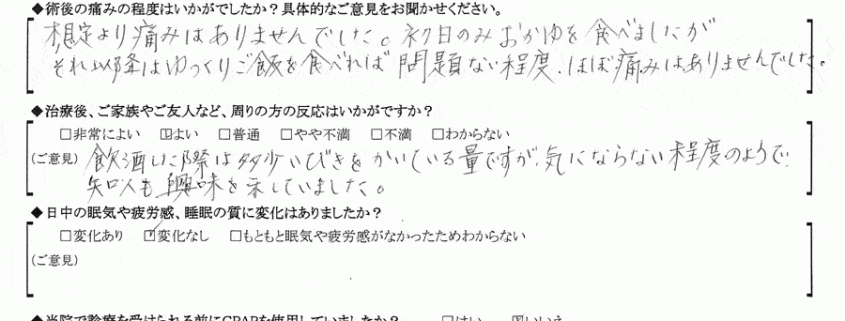 ◆術後の痛みの程度はいかがでしたか?具体的なご意見をお聞かせください。
想定より痛みはありませんでした。初日のみおかゆを食べましたが
それ以降はゆっくりご飯を食べれば問題ない程度、ほぼ痛みはありませんでした。
◆治療後、ご家族やご友人など、周りの方の反応はいかがですか?
□非常によい ☑よい □普通 □やや不満 □不満 □わからない
(ご意見) 飲酒した際は多少いびきをかいている量ですが、気にならない程度のようで
知人も興味を示していました。
◆日中の眠気や疲労感、睡眠の質に変化はありましたか?
□変化あり ☑変化なし □もともと眠気や疲労感がなかったためわからない
(ご意見)
◆当院で診療を受けられる前にCPAPを使用していましたか? □はい ☑いいえ